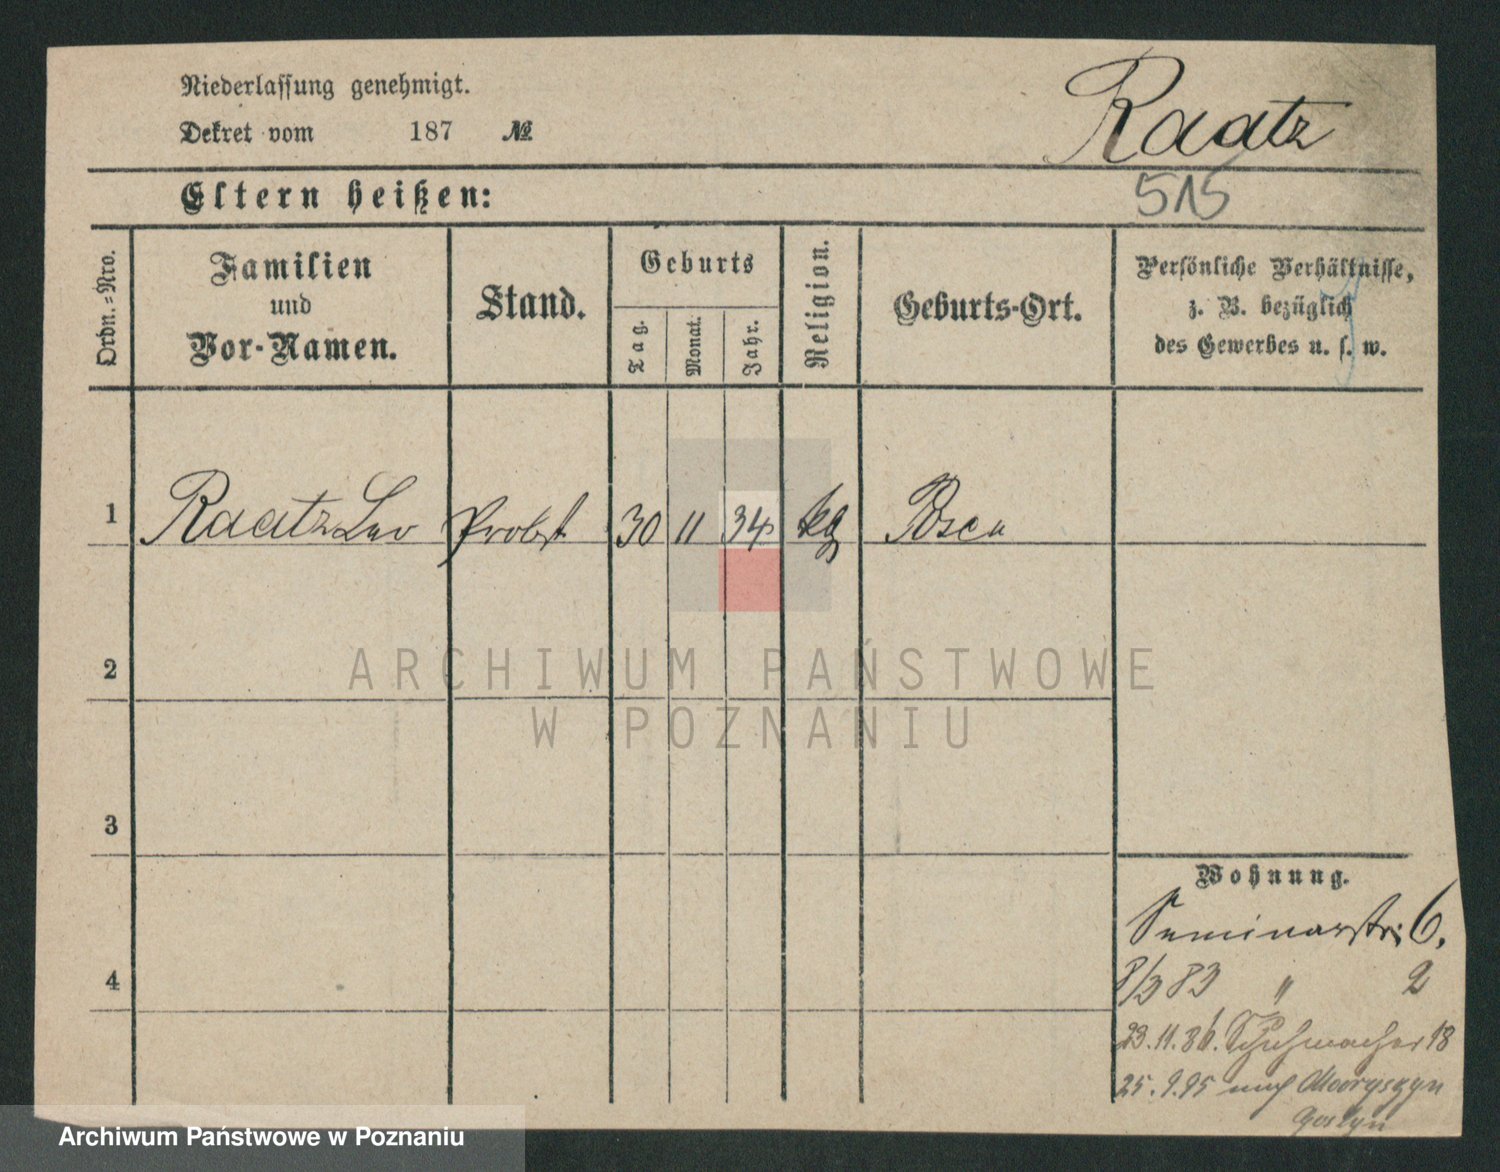 Niederlassung genehmigt.
Dekret vom 187 №
Raatz
Eltern heißen:
515
Ordn.=Nro.
Familien
und
Vor-Namen.
Stand.
Geburts
Tag.
Monat.
Jahr.
Religion.
Geburts-Ort.
Persönliche Verhältnisse,
z. B. bezüglich
des Gewerbes u. s. w.
1 Raatz Leo Probst 30 11 34 kg Posen
2
3
4
ARCHIWUM PAŃSTWOWE
W POZNANIU
Wohnung.
Seminarstr. 6.
8/3 83 " 2
23.11.86. Schuhmacher 18
25.9.95 nach
Goslyn
Archiwum Państwowe w Poznaniu